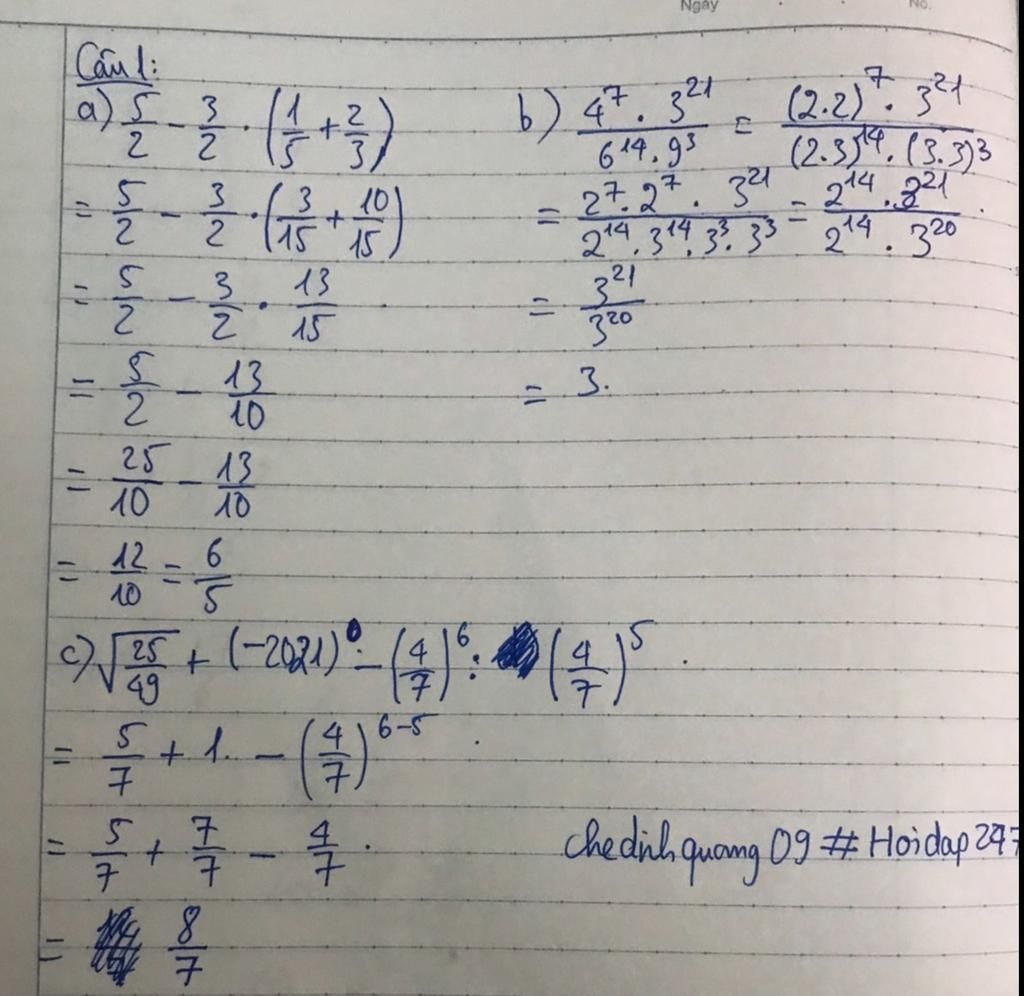 Ngày No.
Câu 1:
a) 5/2 - 3/2 · (1/5 + 2/3)
= 5/2 - 3/2 · (3/15 + 10/15)
= 5/2 - 3/2 · 13/15
= 5/2 - 13/10
= 25/10 - 13/10
= 12/10 = 6/5
b) 4^7 · 3^21 / 6^14 · 9^3 = (2.2)^7 · 3^21 / (2.3)^14 · (3.3)^3
= 2^7 · 2^7 · 3^21 / 2^14 · 3^14 · 3^3 · 3^3 = 2^14 · 3^21 / 2^14 · 3^20
= 3^21 / 3^20
= 3.
c) √(25/49) + (-2021)^0 - (4/7)^6 : (4/7)^5
= 5/7 + 1 - (4/7)^(6-5)
= 5/7 + 7/7 - 4/7
= 8/7
chedinhquang09 # Hoidap247